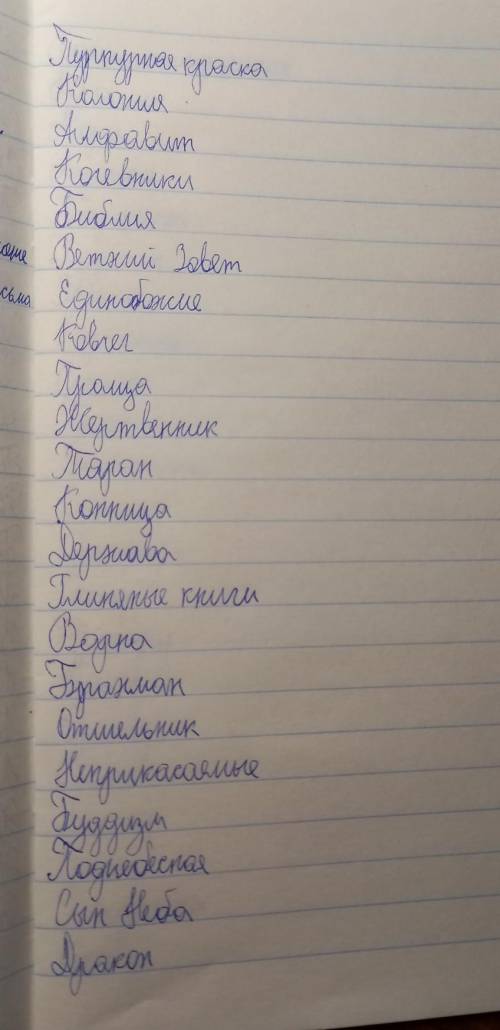 Пурпурная краска
Колония
Алфавит
Кочевники
Библия
Ветхий Завет
Единобожие
Ковчег
Праща
Жертвенник
Таран
Конница
Держава
Глиняные книги
Варна
Брахман
Отшельник
Неприкасаемые
Буддизм
Поднебесная
Сын Неба
Дракон